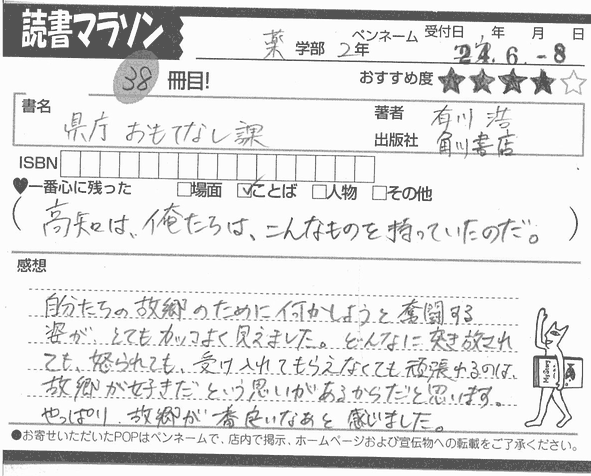 読書マラソン
薬 学部 2年 ペンネーム 受付日 年 月 日
24.6.-8
38 冊目! おすすめ度 ★★★★☆
書名 県庁おもてなし課
著者 有川 浩
出版社 角川書店
ISBN
♥一番心に残った □場面 ☑ことば □人物 □その他
(高知は、俺たちは、こんなものを持っていたのだ。)
感想
自分たちの故郷のために何かしようと奮闘する
姿が、とてもカッコよく見えました。どんなに突き放され
ても、怒られても、受け入れてもらえなくても頑張れるのは、
故郷が好きだという思いがあるからだと思います。
やっぱり、故郷が一番良いなあと感じました。
●お寄せいただいたPOPはペンネームで、店内で掲示、ホームページおよび宣伝物への転載をご了承ください。